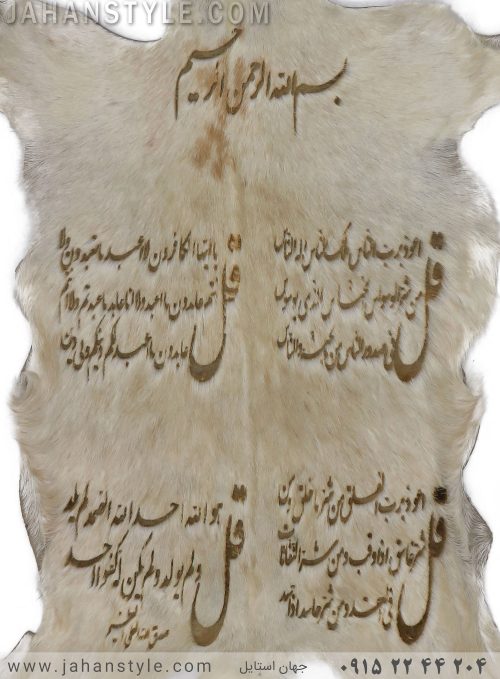 JAHANSTYLE.COM
بسم الله الرحمن الرحیم
قل اعوذ برب الناس ملک الناس اله الناس
من شر الوسواس الخناس الذی یوسوس
فی صدور الناس من الجنة والناس
قل یا ایها الکافرون لا اعبد ما تعبدون ولا
انتم عابدون ما اعبد ولا انا عابد ما عبدتم ولا انتم
عابدون ما اعبد لکم دینکم ولی دین
قل اعوذ برب الفلق من شر ما خلق و من
شر غاسق اذا وقب و من شر النفاثات
فی العقد و من شر حاسد اذا حسد
قل هو الله احد الله الصمد لم یلد
ولم یولد ولم یکن له کفوا احد
صدق الله العلی العظیم
www.jahanstyle.com
جهان استایل
۰۹۱۵ ۲۲ ۴۴ ۲۰۴